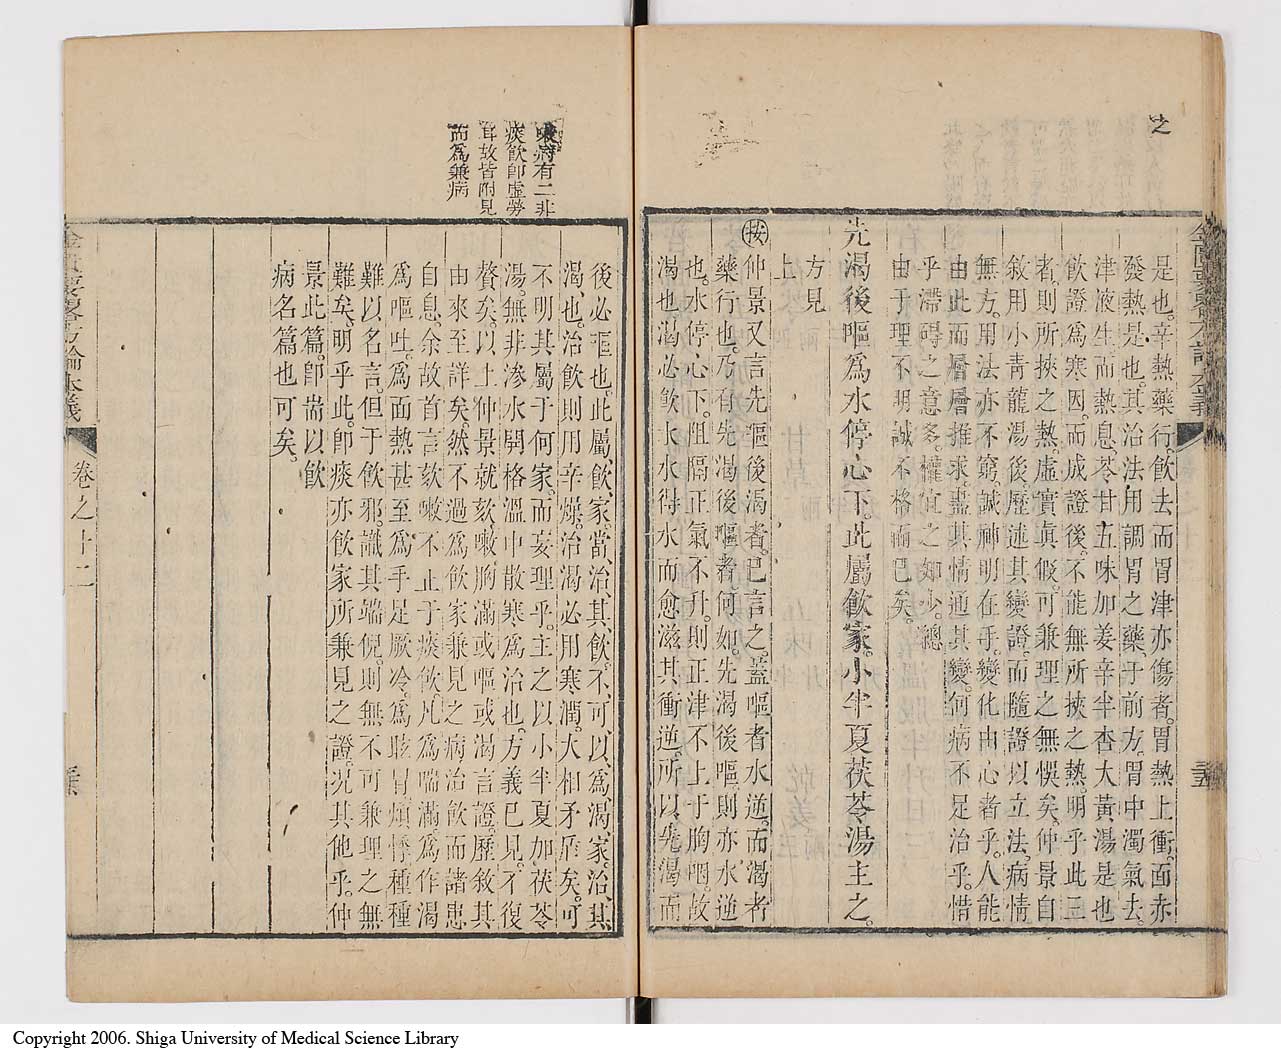 之
是也。辛熱藥行。飲去而胃津亦傷者。胃熱上衝。面赤
發熱是也。其治法用調胃之藥。于前方。胃中濁氣去。
津液生而熱息。苓甘五味加姜辛半杏大黃湯是也
飲證爲寒因。而成證後。不能無所挾之熱。明乎此三
者。則所挾之熱。虛實眞假。可兼理之無悞矣。仲景自
敘用小青龍湯後。歷述其變證。而隨證以立法。病情
無方。用法亦不窮。誠神明在乎。變化由心者乎。人能
由此而層層推求。盡其情。通其變。何病不足治乎。惜
乎滯碍之意多。權宜之妙少。總
由于理不明。誠不格而已矣。
先渴後嘔。爲水停心下。此屬飲家。小半夏茯苓湯主之。
方見
上
按仲景又言先嘔後渴者。已言之。蓋嘔者水逆。而渴者
藥行也。乃有先渴後嘔者。何如。先渴後嘔。則亦水逆
也。水停心下。阻隔正氣不升。則正津不上于胸咽。故
渴也。渴必飲水。水得水而愈滋其衝逆。所以先渴而
三五
嗽病有二非
痰飲卽虛勞
耳故皆附見
而爲兼病
後必嘔也。此屬飲家。當治其飲。不可以爲渴家。治其
渴也。治飲則用辛燥。治渴必用寒潤。大相矛盾矣。可
不明其屬于何家。而妄理乎。主之以小半夏加茯苓
湯。無非滲水開格溫中散寒爲治也。方義已見。不復
贅矣。以上仲景就欬嗽胸滿或嘔或渴言證。歷敘其
由來至詳矣。然不過爲飲家兼見之病。治飲而諸患
自息。余故首言欬嗽不止于痰飲。凡爲喘滿。爲作渴
爲嘔吐。爲面熱甚。至爲手足厥冷。爲眩冒煩悸。種種
難以名言。但于飲邪。識其端倪。則無不可兼理之無
難矣。明乎此。卽痰亦飲家所兼見之證。况其他乎。仲
景此篇。卽耑以飲
病名篇也可矣。
金匱要畧方論本義
卷之十二